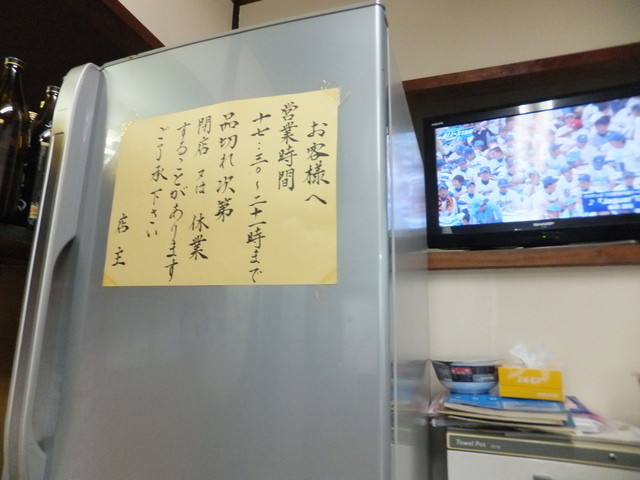 お客様へ
営業時間
十七:三〇〜二十一時まで
品切れ次第
閉店又は休業
することがあります
ご了承下さい
店主
SHARP
Towel Pot